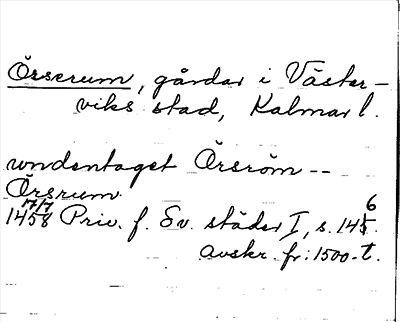 Örserum, gårdar i Väster-
viks stad, Kalmar l.
undentaget Örsröm --
Örsrum
17/7 1458 Priv. f. Sv. städer I, s. 146.
avskr. fr: 1500-t.